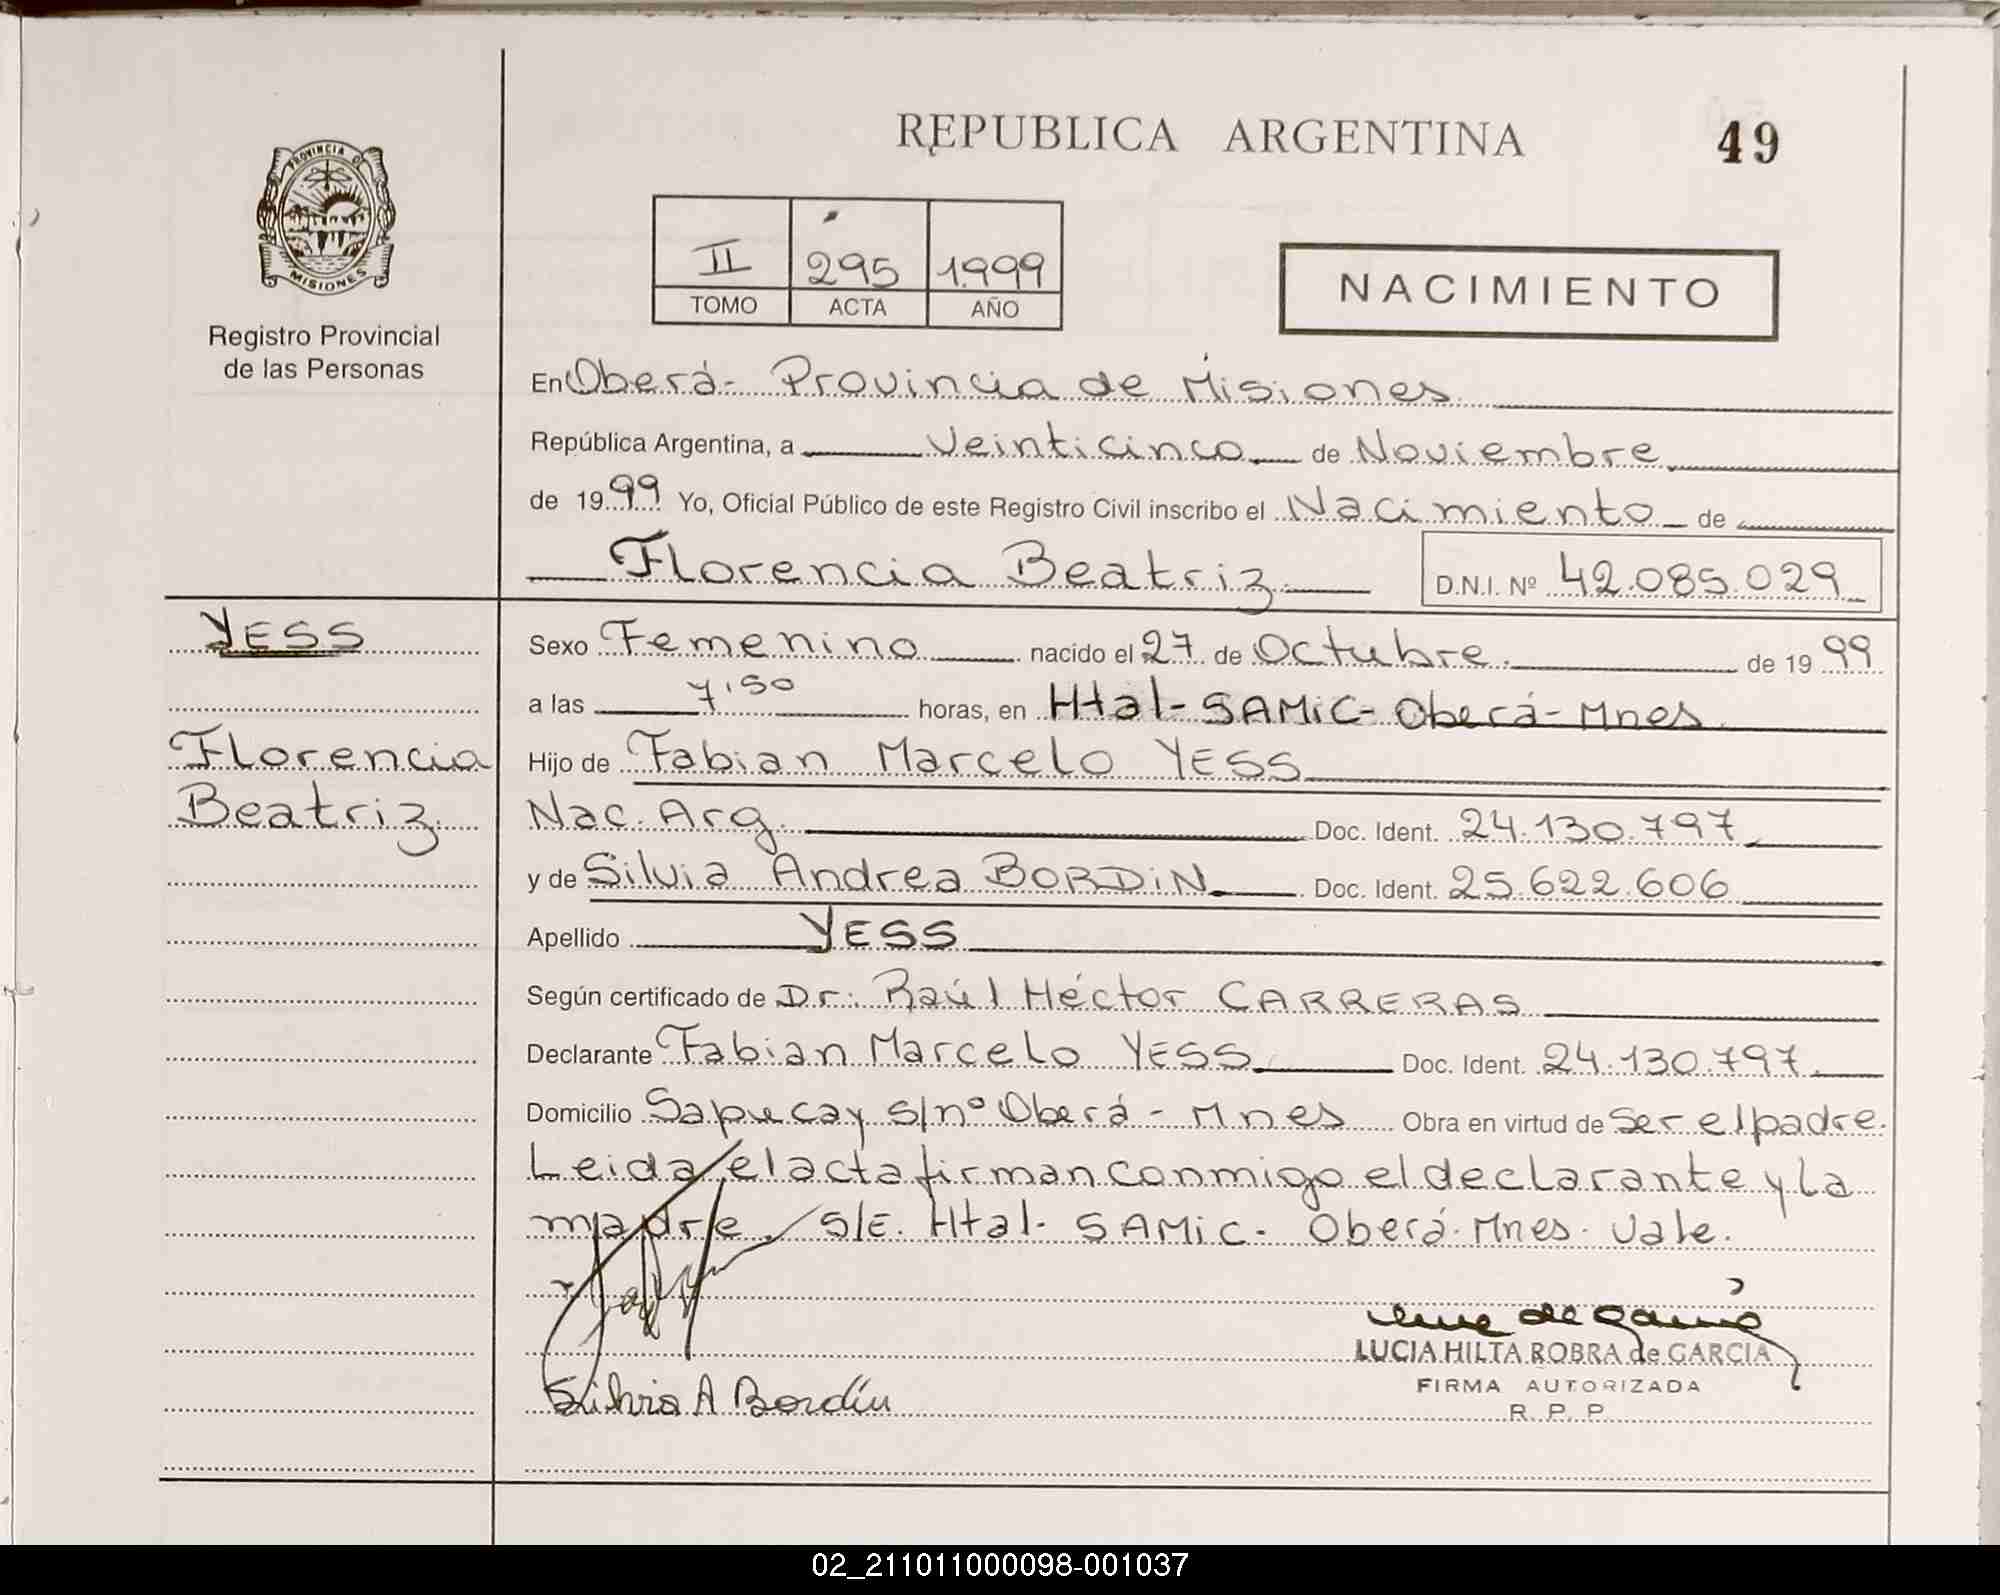 REPUBLICA ARGENTINA
49
PROVINCIA DE
MISIONES
Registro Provincial
de las Personas
II 295 1999
TOMO ACTA AÑO
NACIMIENTO
En Oberá- Provincia de Misiones
República Argentina, a Veinticinco de Noviembre
de 1999 Yo, Oficial Público de este Registro Civil inscribo el Nacimiento de
Florencia Beatriz D.N.I. Nº 42.085.029
YESS
Florencia
Beatriz
Sexo Femenino nacido el 27 de Octubre de 1999
a las 7'50 horas, en Htal- SAMiC- Oberá- Mnes
Hijo de Fabian Marcelo YESS
Nac. Arg. Doc. Ident. 24.130.797
y de Silvia Andrea BORDiN Doc. Ident. 25.622.606
Apellido YESS
Según certificado de Dr: Raúl Héctor CARRERAS
Declarante Fabian Marcelo YESS Doc. Ident. 24.130.797
Domicilio Sapucay s/nº Oberá - Mnes Obra en virtud de Ser el padre.
Leida el acta firman conmigo el declarante y la
madre. S/E. Htal- SAMiC- Oberá- Mnes. Vale.
de Garcia
LUCIA HILTA ROBRA de GARCIA
FIRMA AUTORIZADA
R. P. P.
Silvia A Bordín
02_211011000098-001037